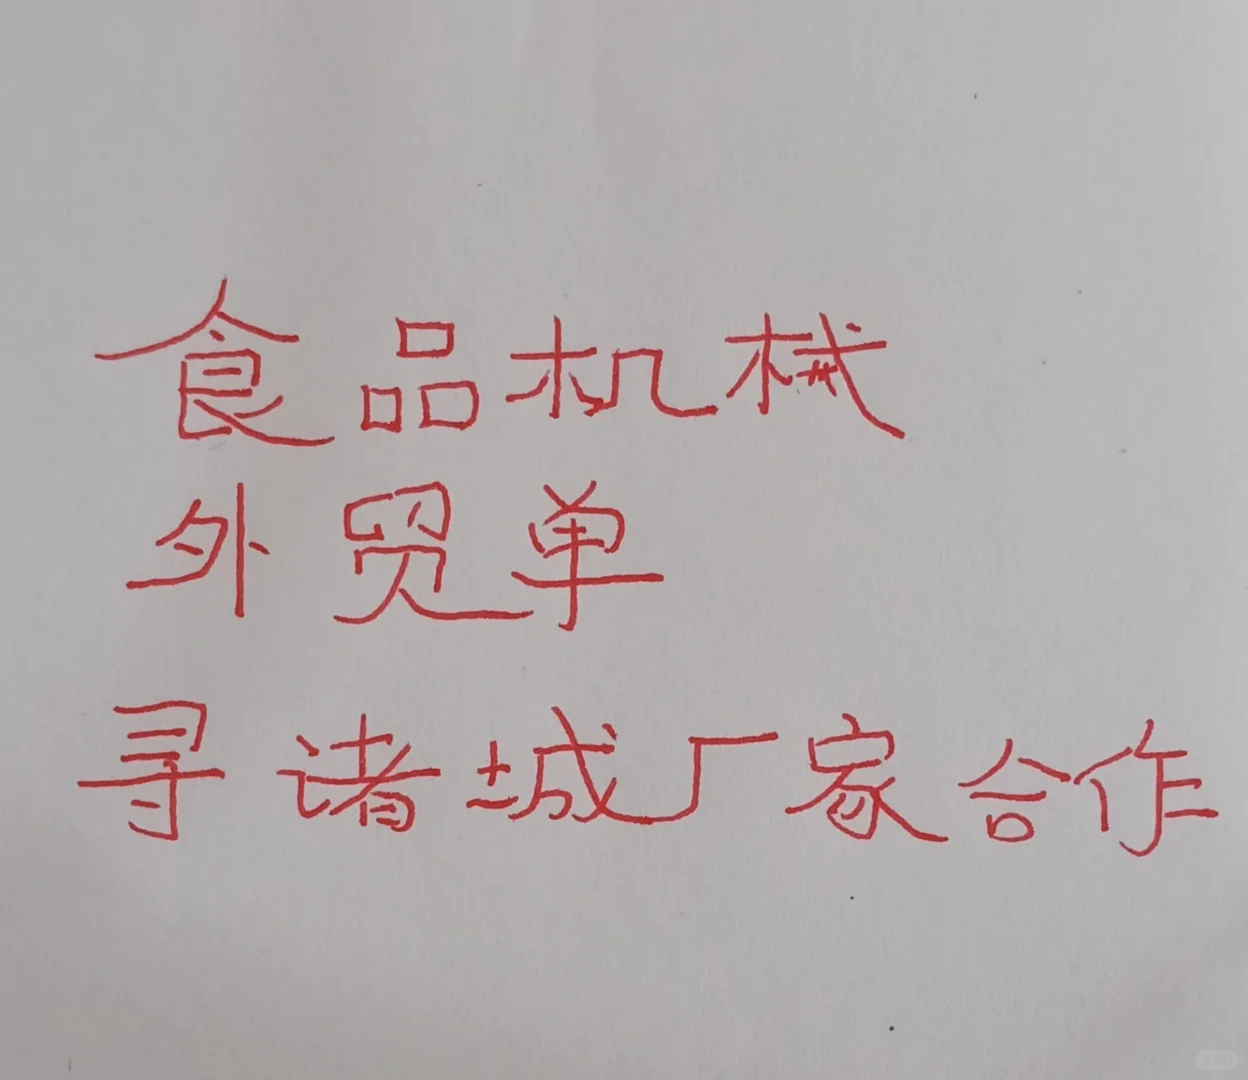 食品机械
外贸单
寻诸城厂家合作